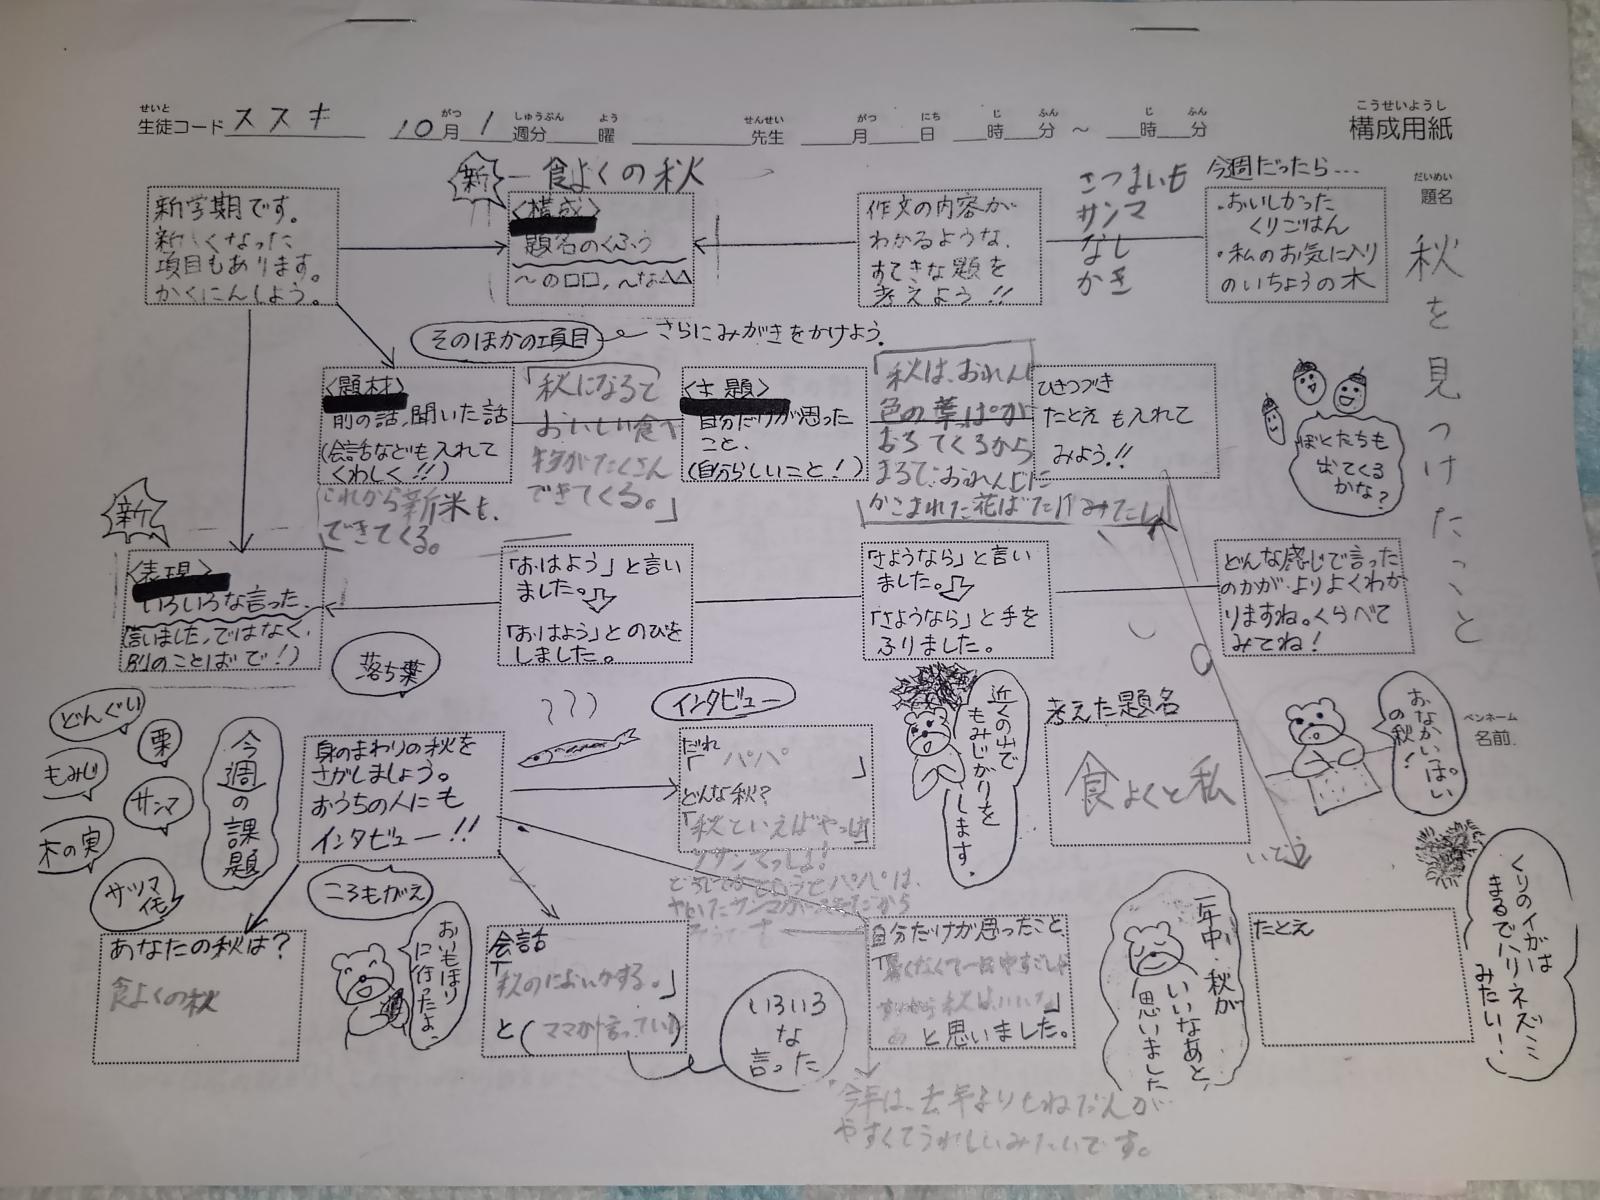 構成用紙
こうせいようし
せいと
生徒コード ススキ 10月1週分 曜 先生 月 日 時 分 ～ 時 分
がつ しゅうぶん よう せんせい がつ にち じ ふん じ ふん
だいめい
題名
秋を見つけたこと
ペンネーム
名前
新
食よくの秋
新学期です。
新しくなった
項目もあります。
かくにんしよう。
<構成>
題名のくふう
～の□□,～な△△
作文の内容が
わかるような、
すてきな題を
考えよう!!
さつまいも
サンマ
なし
かき
今週だったら…
・おいしかった
くりごはん
・私のお気に入り
のいちょうの木
そのほかの項目
さらにみがきをかけよう。
<題材>
前の話,聞いた話
(会話なども入れて
くわしく!!)
「秋になると
おいしい食べ
物がたくさん
できてくる。
これから新米も、
できてくる。」
<主題>
自分だけが思った
こと、
(自分らしいこと!)
「秋は、おれんじ
色の葉っぱが
おちてくるから
まるで、おれんじに
かこまれた花ばたけみたい」
ひきつづき
たとえも入れて
みよう!!
ぼくたちも
出てくる
かな?
新
<表現>
いろいろな言った
(言いました,ではなく,
別のことばで!)
「おはよう」と言い
ました。
「おはよう」とのびを
しました。
「さようなら」と言い
ました。
「さようなら」と手を
ふりました。
どんな感じで言った
のかが、よりよくわか
りますね。くらべて
みてね!
落ち葉
どんぐり
栗
もみじ
サンマ
木の実
サツマイモ
今週の課題
身のまわりの秋を
さがしましょう。
おうちの人にも
インタビュー!!
ころもがえ
インタビュー
だれ
「パパ」
どんな秋?
「秋といえばやっぱ
りサンマでしょ!
近くの山で
もみじがりを
します。
考えた題名
食よくと私
おなかいっぱい
の秋!
あなたの秋は?
食よくの秋
おいもほり
に行ったよ。
会話
「秋のにおいがする。」
と(ママが言っていた)
いろいろ
な
言った
自分だけが思ったこと
と思いました。
今年は、去年よりもねだんが
やすくてうれしいみたいです。
一年中、秋が
いいなあと、
思いました
たとえ
くりのイガは
まるでハリネズミ
みたい!